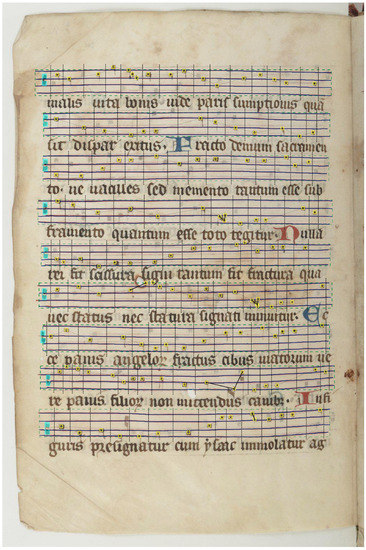 malis vita bonis vide paris sumptionis quā
sit dispar exitus. Fracto demum sacramen
to. ne vacilles sed memento tantum esse sub
fragmento quantum esse toto tegitur. Nulla
rei fit scissura signi tantum fit fractura qua
nec status nec statura signati minuitur. Ec
ce panis angelor factus cibus viatorum ve
re panis filior non mittendus canibꝰ. In fi
guris presignatur cum ysaac immolatur ag